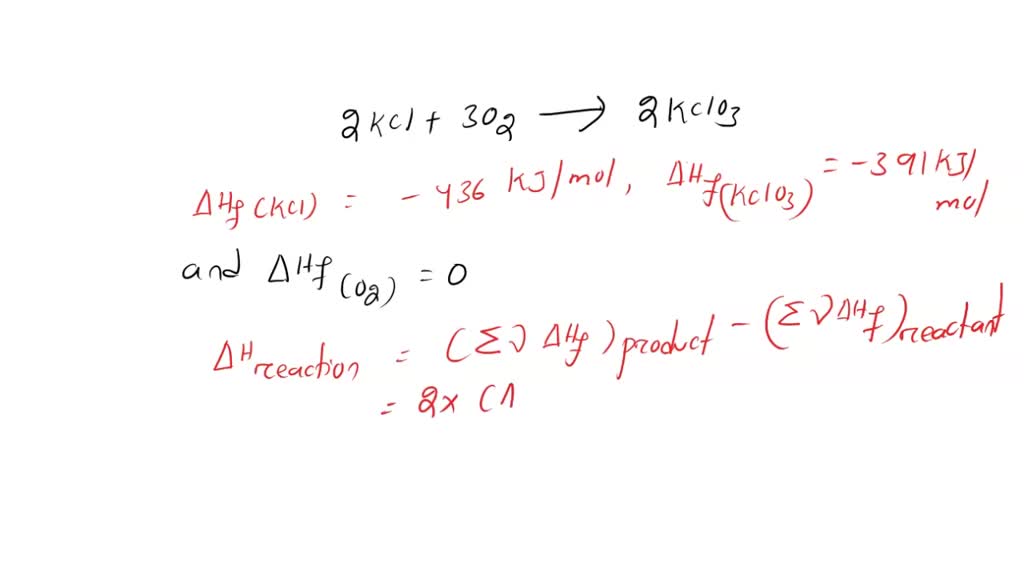 2KCl + 3O2 → 2KClO3
ΔHf(KCl) = -436 KJ/mol, ΔHf(KClO3) = -391KJ/mol
and ΔHf(O2) = 0
ΔHreaction = (ΣνΔHf)product - (ΣνΔHf)reactant
= 2x (Λ